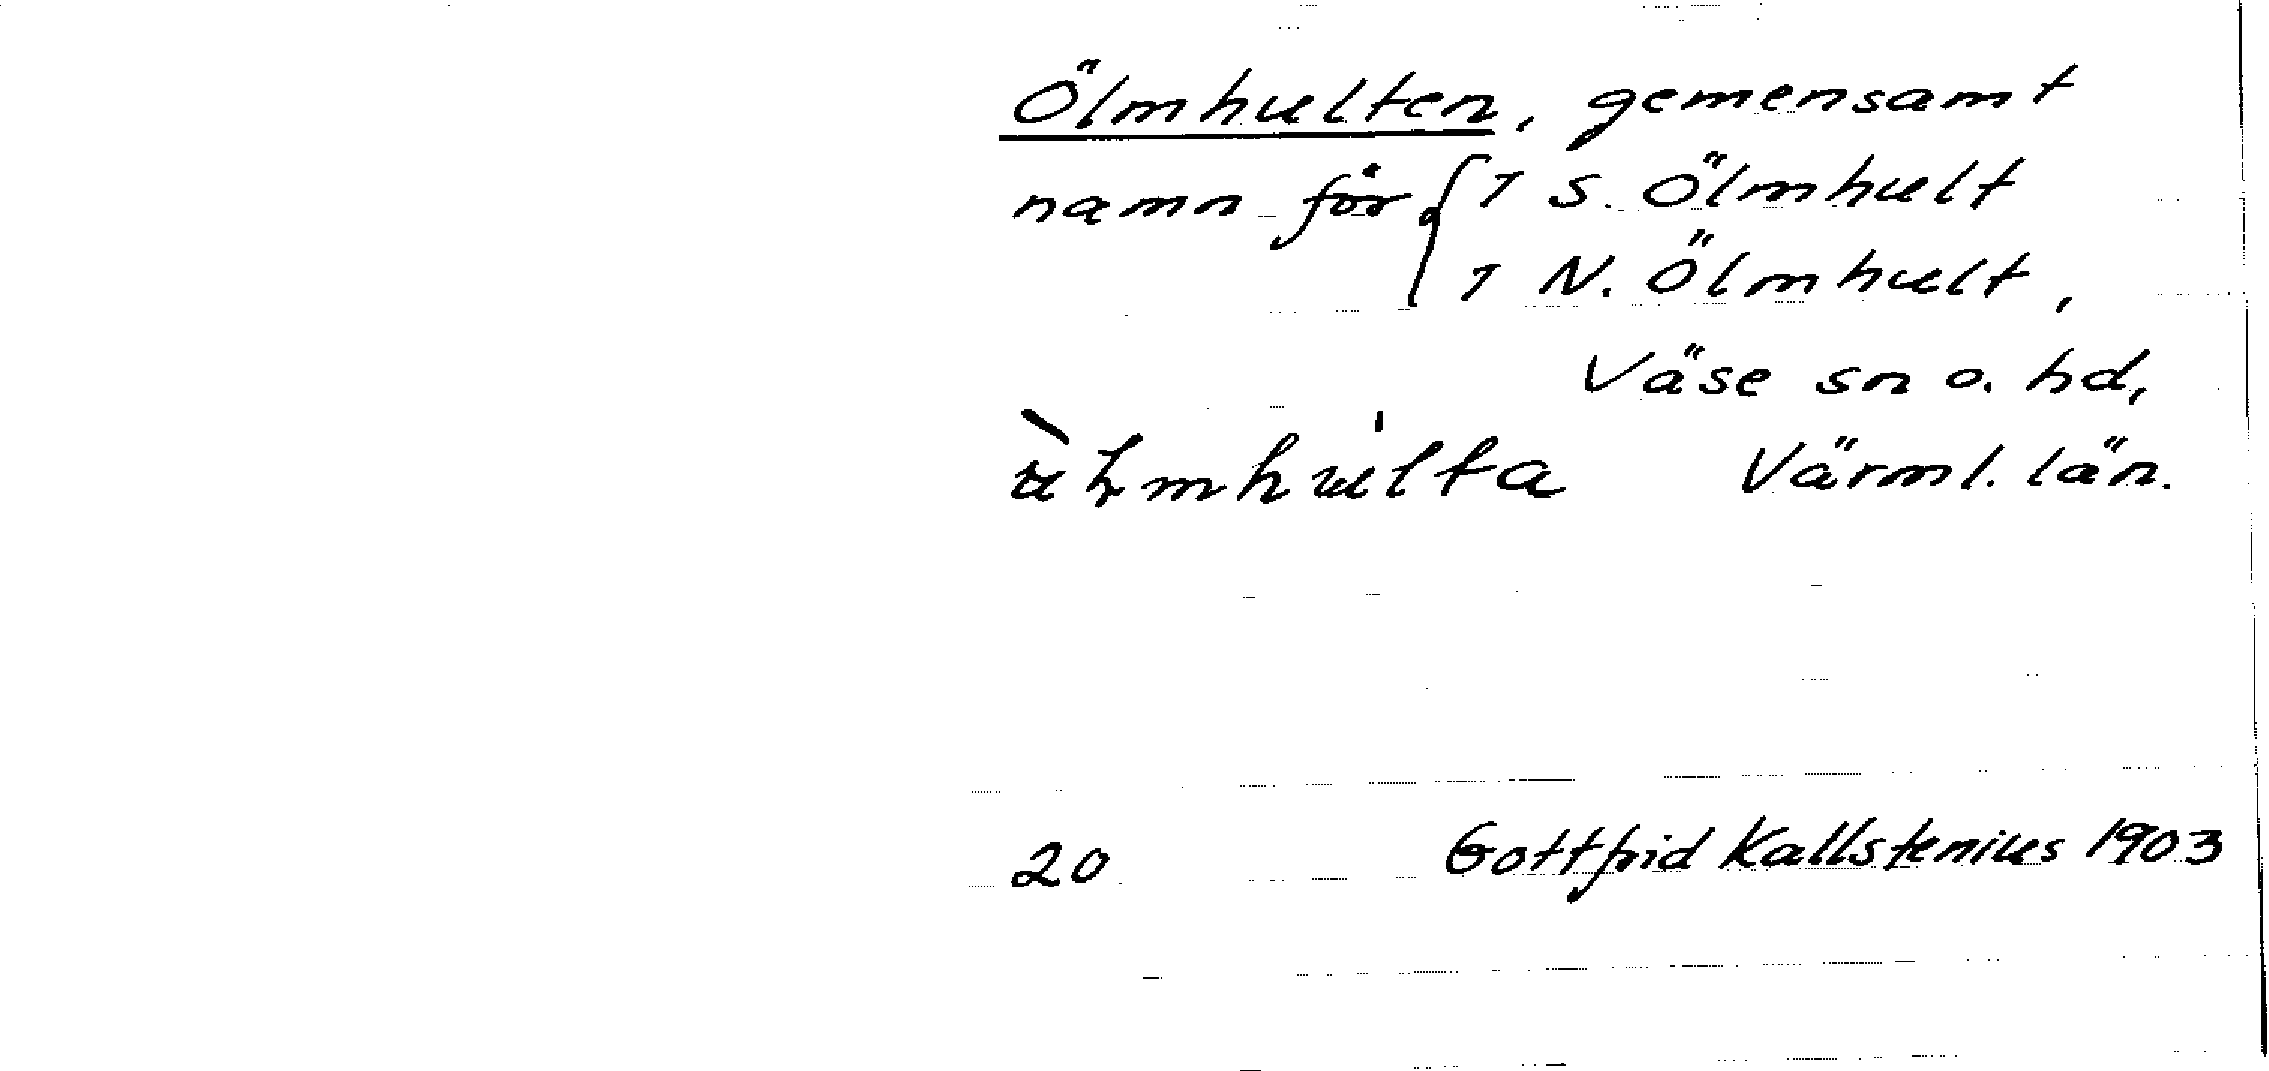 Ölmhulten, gemensamt
namn för { 1 S. Ölmhult
1 N. Ölmhult,
Väse sn o. hd,
Värml. län.
20 Gottfrid Kallstenius 1903